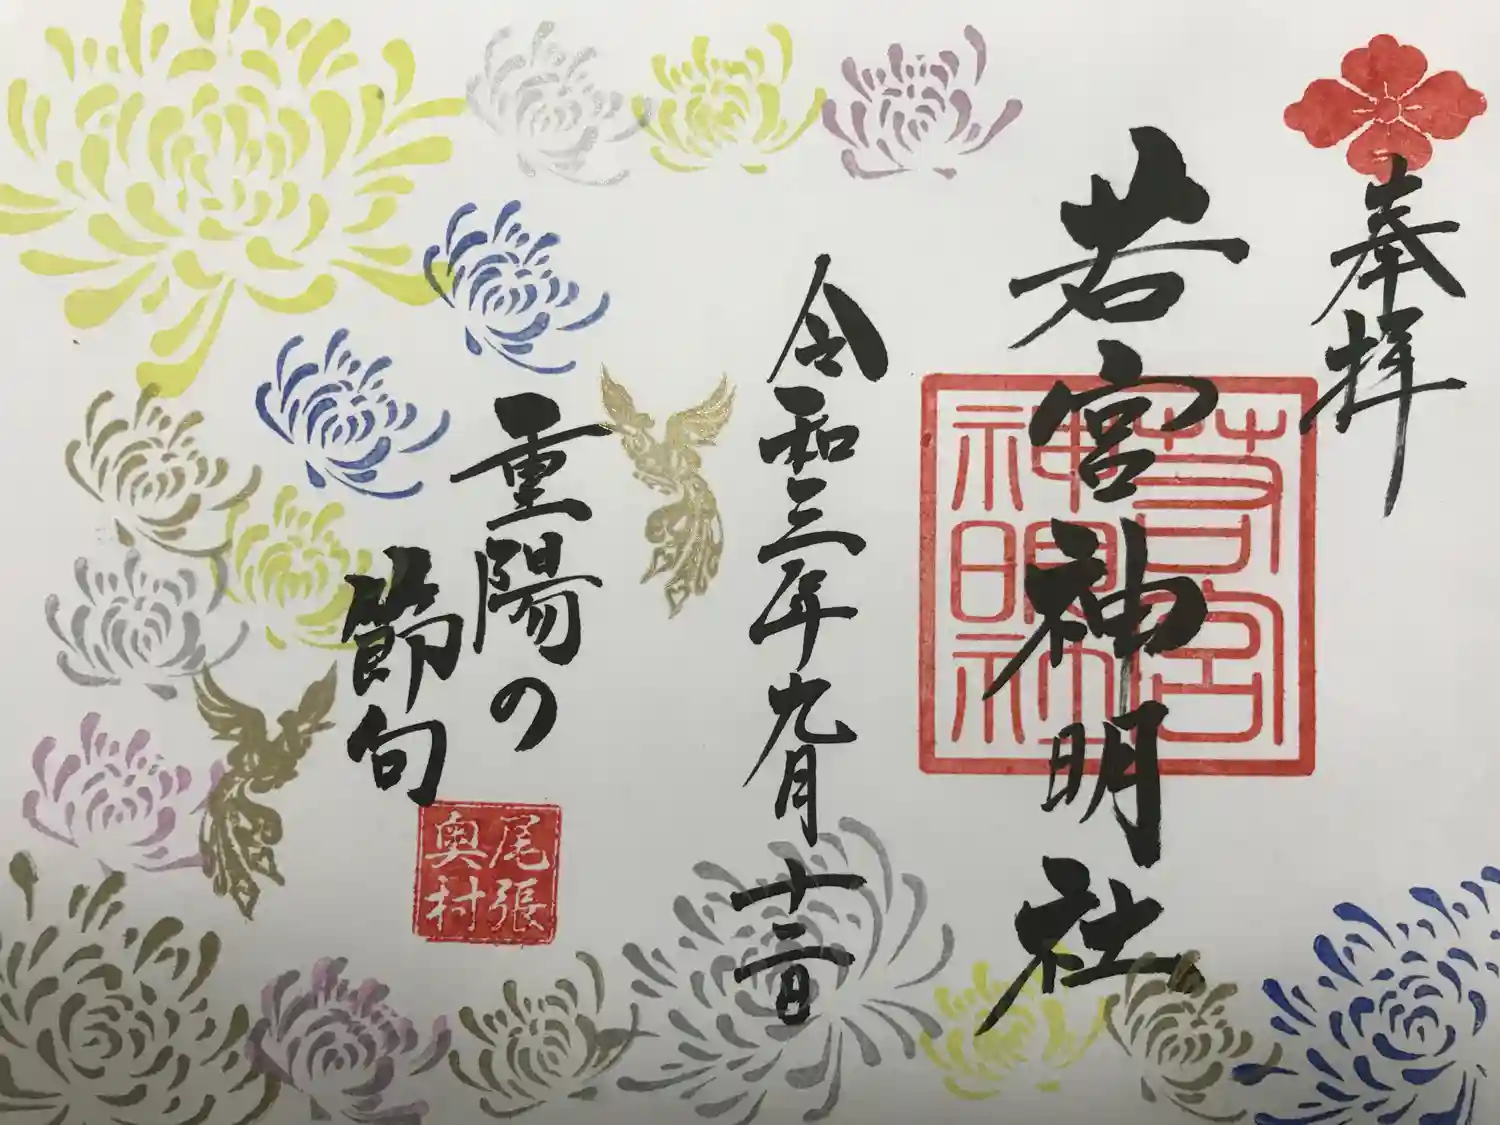 奉拝
若宮神明社
若宮
神明社
令和三年九月十二日
重陽の
節句
尾張
奥村